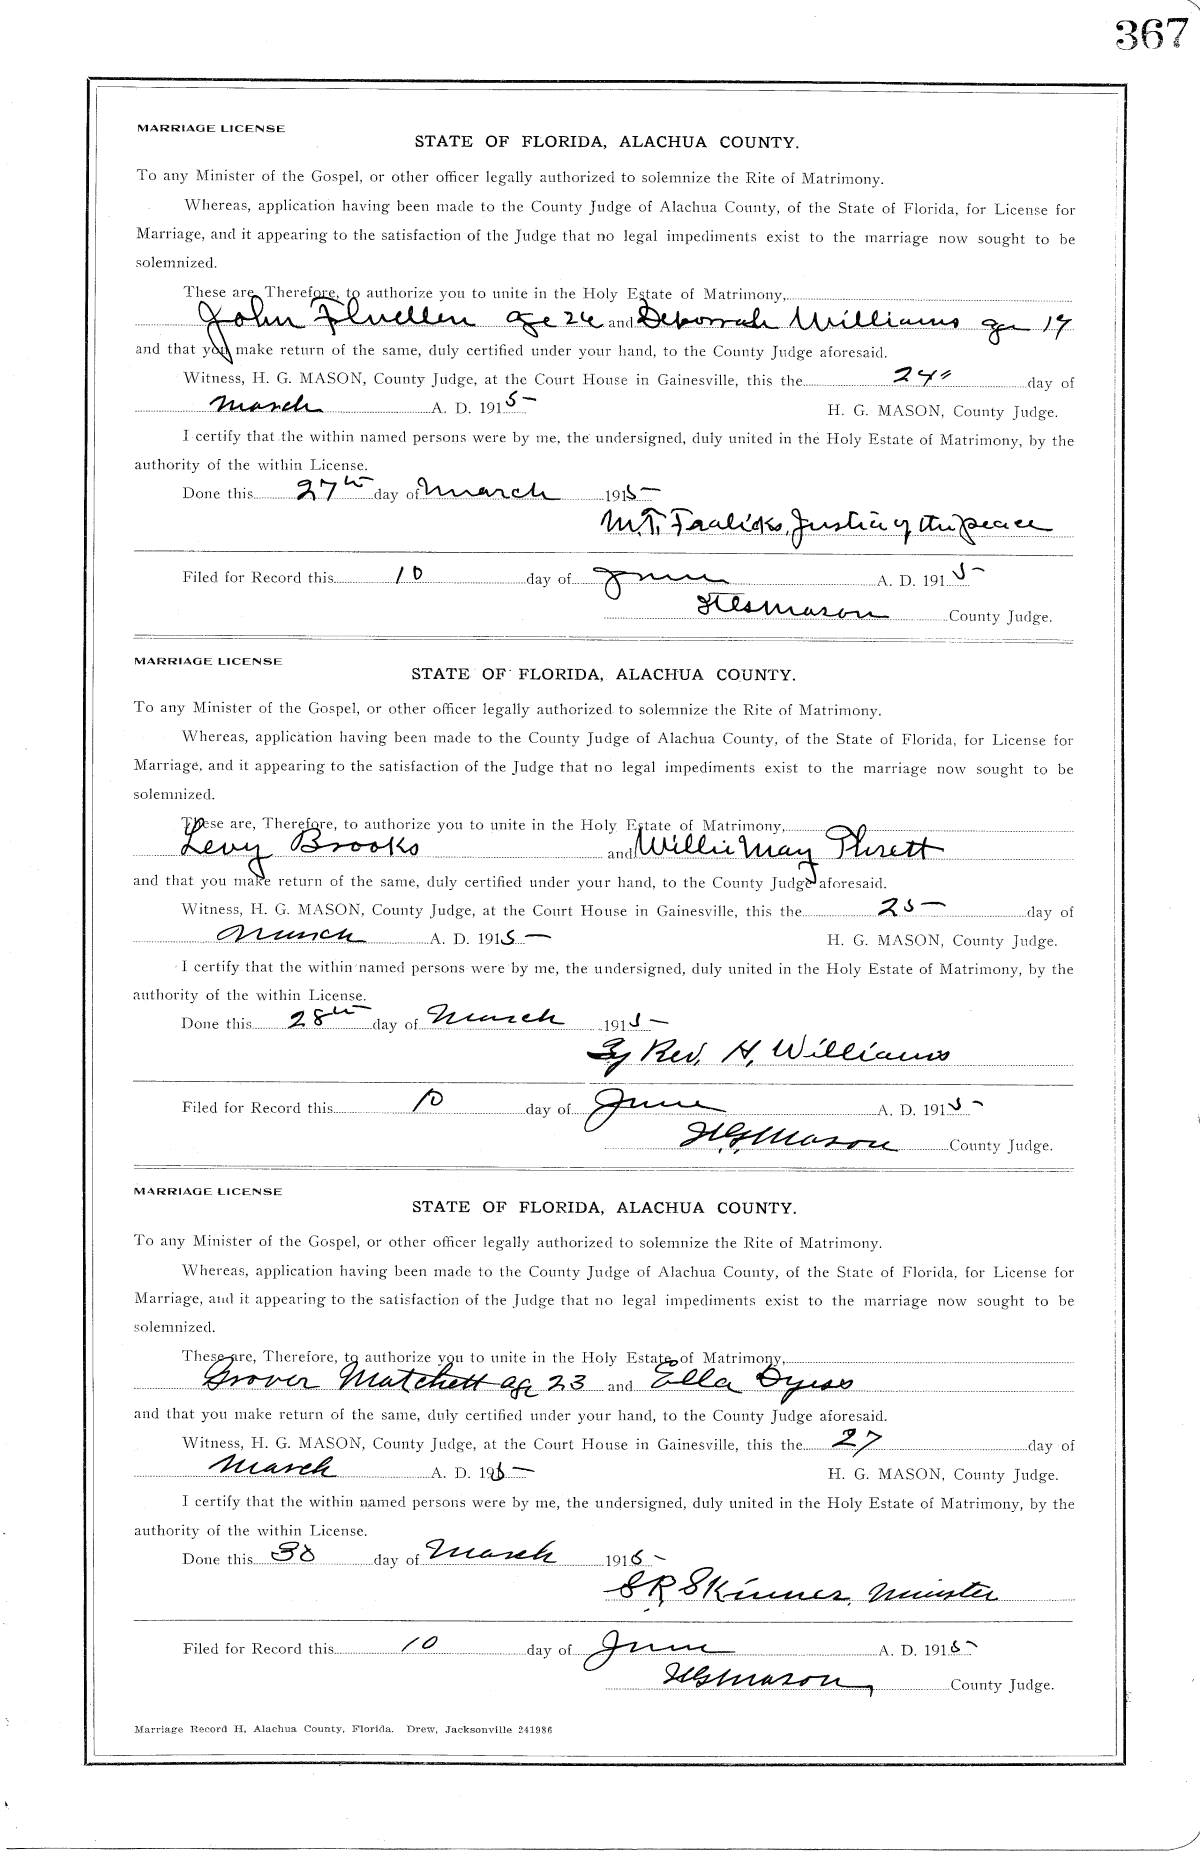 367
MARRIAGE LICENSE
STATE OF FLORIDA, ALACHUA COUNTY.
To any Minister of the Gospel, or other officer legally authorized to solemnize the Rite of Matrimony.
Whereas, application having been made to the County Judge of Alachua County, of the State of Florida, for License for
Marriage, and it appearing to the satisfaction of the Judge that no legal impediments exist to the marriage now sought to be
solemnized.
These are, Therefore, to authorize you to unite in the Holy Estate of Matrimony,
John Fluellen age 26 and Deborrah Williams age 19
and that you make return of the same, duly certified under your hand, to the County Judge aforesaid.
Witness, H. G. MASON, County Judge, at the Court House in Gainesville, this the 24" day of
March A. D. 1915 H. G. MASON, County Judge.
I certify that the within named persons were by me, the undersigned, duly united in the Holy Estate of Matrimony, by the
authority of the within License.
Done this 27th day of March 1915
M.T. Justice of the peace
Filed for Record this 10 day of June A. D. 1915
H G Mason County Judge.
MARRIAGE LICENSE
STATE OF FLORIDA, ALACHUA COUNTY.
To any Minister of the Gospel, or other officer legally authorized to solemnize the Rite of Matrimony.
Whereas, application having been made to the County Judge of Alachua County, of the State of Florida, for License for
Marriage, and it appearing to the satisfaction of the Judge that no legal impediments exist to the marriage now sought to be
solemnized.
These are, Therefore, to authorize you to unite in the Holy Estate of Matrimony,
Levy Brooks and Willie May
and that you make return of the same, duly certified under your hand, to the County Judge aforesaid.
Witness, H. G. MASON, County Judge, at the Court House in Gainesville, this the 25 day of
March A. D. 1915 H. G. MASON, County Judge.
I certify that the within named persons were by me, the undersigned, duly united in the Holy Estate of Matrimony, by the
authority of the within License.
Done this 28th day of March 1915
By Rev. H. Williams
Filed for Record this 10 day of June A. D. 1915
H.G. Mason County Judge.
MARRIAGE LICENSE
STATE OF FLORIDA, ALACHUA COUNTY.
To any Minister of the Gospel, or other officer legally authorized to solemnize the Rite of Matrimony.
Whereas, application having been made to the County Judge of Alachua County, of the State of Florida, for License for
Marriage, and it appearing to the satisfaction of the Judge that no legal impediments exist to the marriage now sought to be
solemnized.
These are, Therefore, to authorize you to unite in the Holy Estate of Matrimony,
Grover Matchett age 23 and Ella Dyess
and that you make return of the same, duly certified under your hand, to the County Judge aforesaid.
Witness, H. G. MASON, County Judge, at the Court House in Gainesville, this the 27 day of
March A. D. 1915 H. G. MASON, County Judge.
I certify that the within named persons were by me, the undersigned, duly united in the Holy Estate of Matrimony, by the
authority of the within License.
Done this 30 day of March 1915
S R Skinner, Minister
Filed for Record this 10 day of June A. D. 1915
H G Mason County Judge.
Marriage Record H, Alachua County, Florida. Drew, Jacksonville 241986